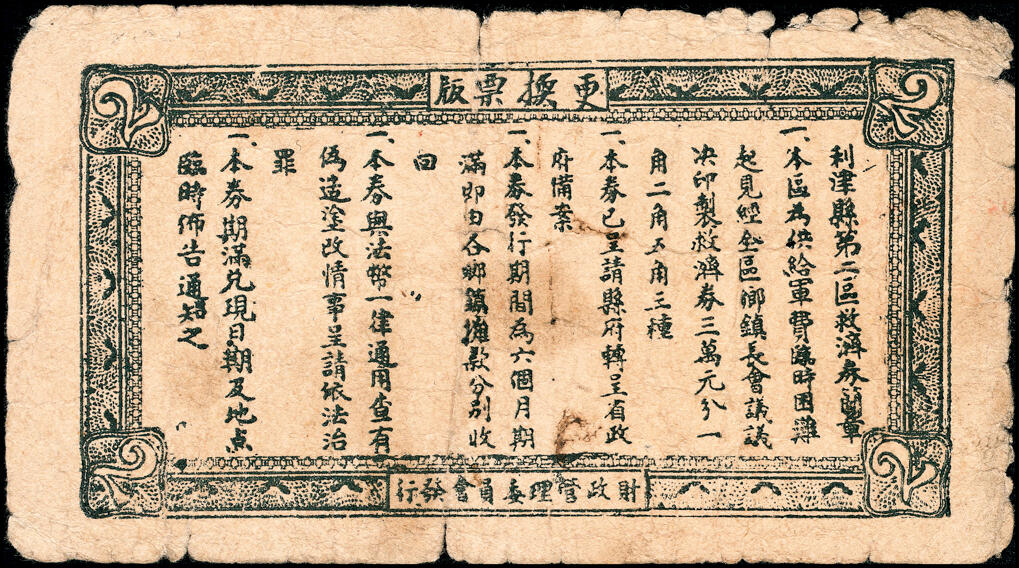 更換票版
利津縣第二區救濟券簡章
一、本區為供給軍費臨時困難
起見經全區鄉鎮長會議議
决印製救濟券三萬元分一
角二角五角三種
一、本券已呈請縣府轉呈省政
府備案
一、本券發行期間為六個月期
滿即由各鄉鎮攤款分别收
回
一、本券與法幣一律通用查有
偽造塗改情事呈請依法治
罪
一、本券期滿兌現日期及地点
臨時佈告通知之
財政管理委員會發行